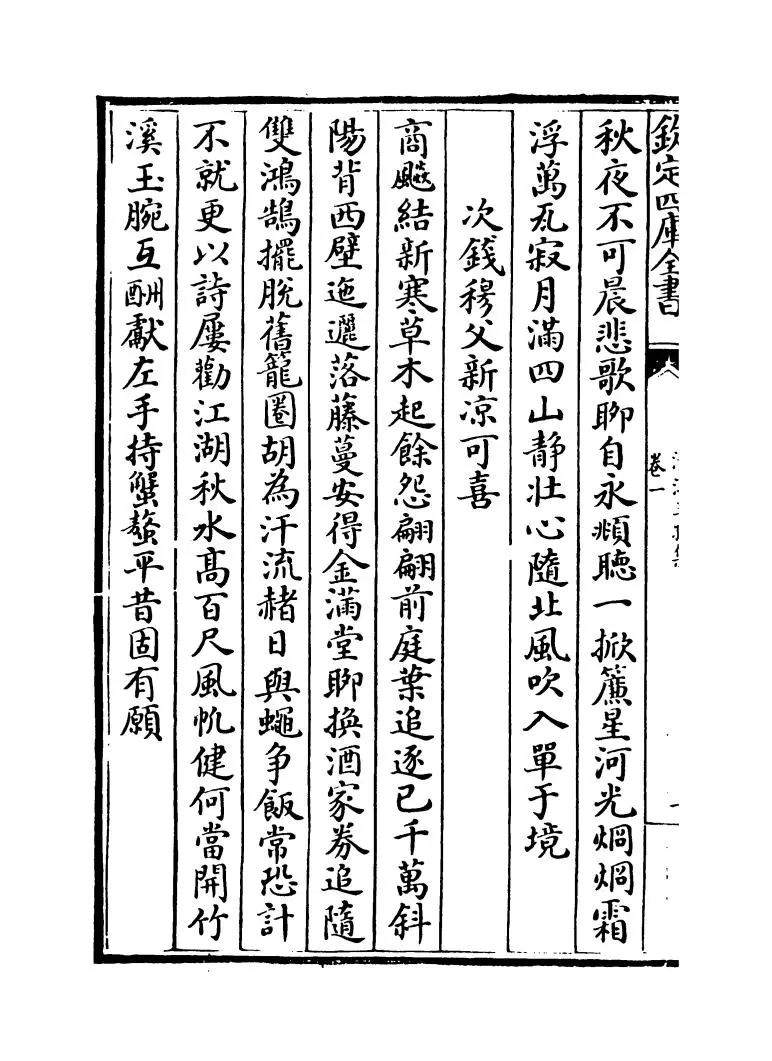 欽定四庫全書
卷一
秋夜不可晨悲歌聊自永頻聽一掀簾星河光烱烱霜
浮萬瓦寂月滿四山静壯心隨北風吹入單于境
次錢穆父新凉可喜
商飈結新寒草木起餘怨翩翩前庭葉追逐已千萬斜
陽背西壁迤邐落藤蔓安得金滿堂聊換酒家券追隨
雙鴻鵠擺脱舊籠圈胡為汗流赭日與蠅争飯常恐計
不就更以詩屢勸江湖秋水髙百尺風帆健何當開竹
溪玉腕互酬獻左手持蟹螯平昔固有願